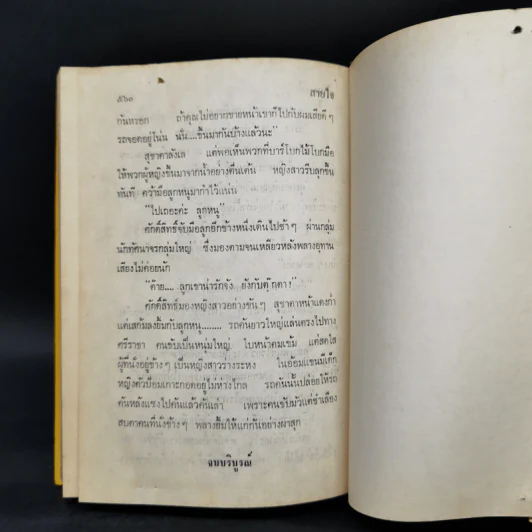 ๕๖๓ สายใจ
กันหรอก ถ้าคุณไม่อยากขายหน้าเขาก็ไปกับผมเสียดีๆ
รถจอดอยู่โน่น นั่น...ขึ้นมากันบ้างแล้วนะ"
สุชาดาลังเล แต่พอเห็นพวกที่บาร์โบกไม้โบกมือ
ให้พวกผู้หญิงขึ้นมาจากน้ำอย่างตื่นเต้น หญิงสาวรีบลุกขึ้น
ทันที คว้ามือลูกหนูมากำไว้แน่น
"ไปเถอะค่ะ ลูกหนู"
ศักดิ์สิทธิ์จับมือลูกอีกข้างหนึ่งเดินไปช้าๆ ผ่านกลุ่ม
นักทัศนาจรกลุ่มใหญ่ ซึ่งมองตามจนเหลียวหลังพลางอุทาน
เสียงไม่ค่อยนัก
"ต๊าย.... ลูกเขาน่ารักจัง ยังกับตุ๊กตา!"
ศักดิ์สิทธิ์มองหญิงสาวอย่างขันๆ สุชาดาหน้าแดงก่ำ
แต่เสก้มลงยิ้มกับลูกหนู........ รถคันยาวใหญ่แล่นตรงไปทาง
ศรีราชา คนขับเป็นหนุ่มใหญ่ ใบหน้าคมเข้ม แต่สดใส
ผู้ที่นั่งอยู่ข้างๆ เป็นหญิงสาวร่างระหง ในอ้อมแขนมีเด็ก
หญิงตัวป้อมเกาะกอดอยู่ไม่ห่างไกล รถคันนั้นปล่อยให้รถ
คันหลังแซงไปคันแล้วคันเล่า เพราะคนขับมัวแต่ชำเลือง
สบตาคนที่นั่งข้างๆ พลางยิ้มให้แก่กันอย่างผาสุก
จบบริบูรณ์